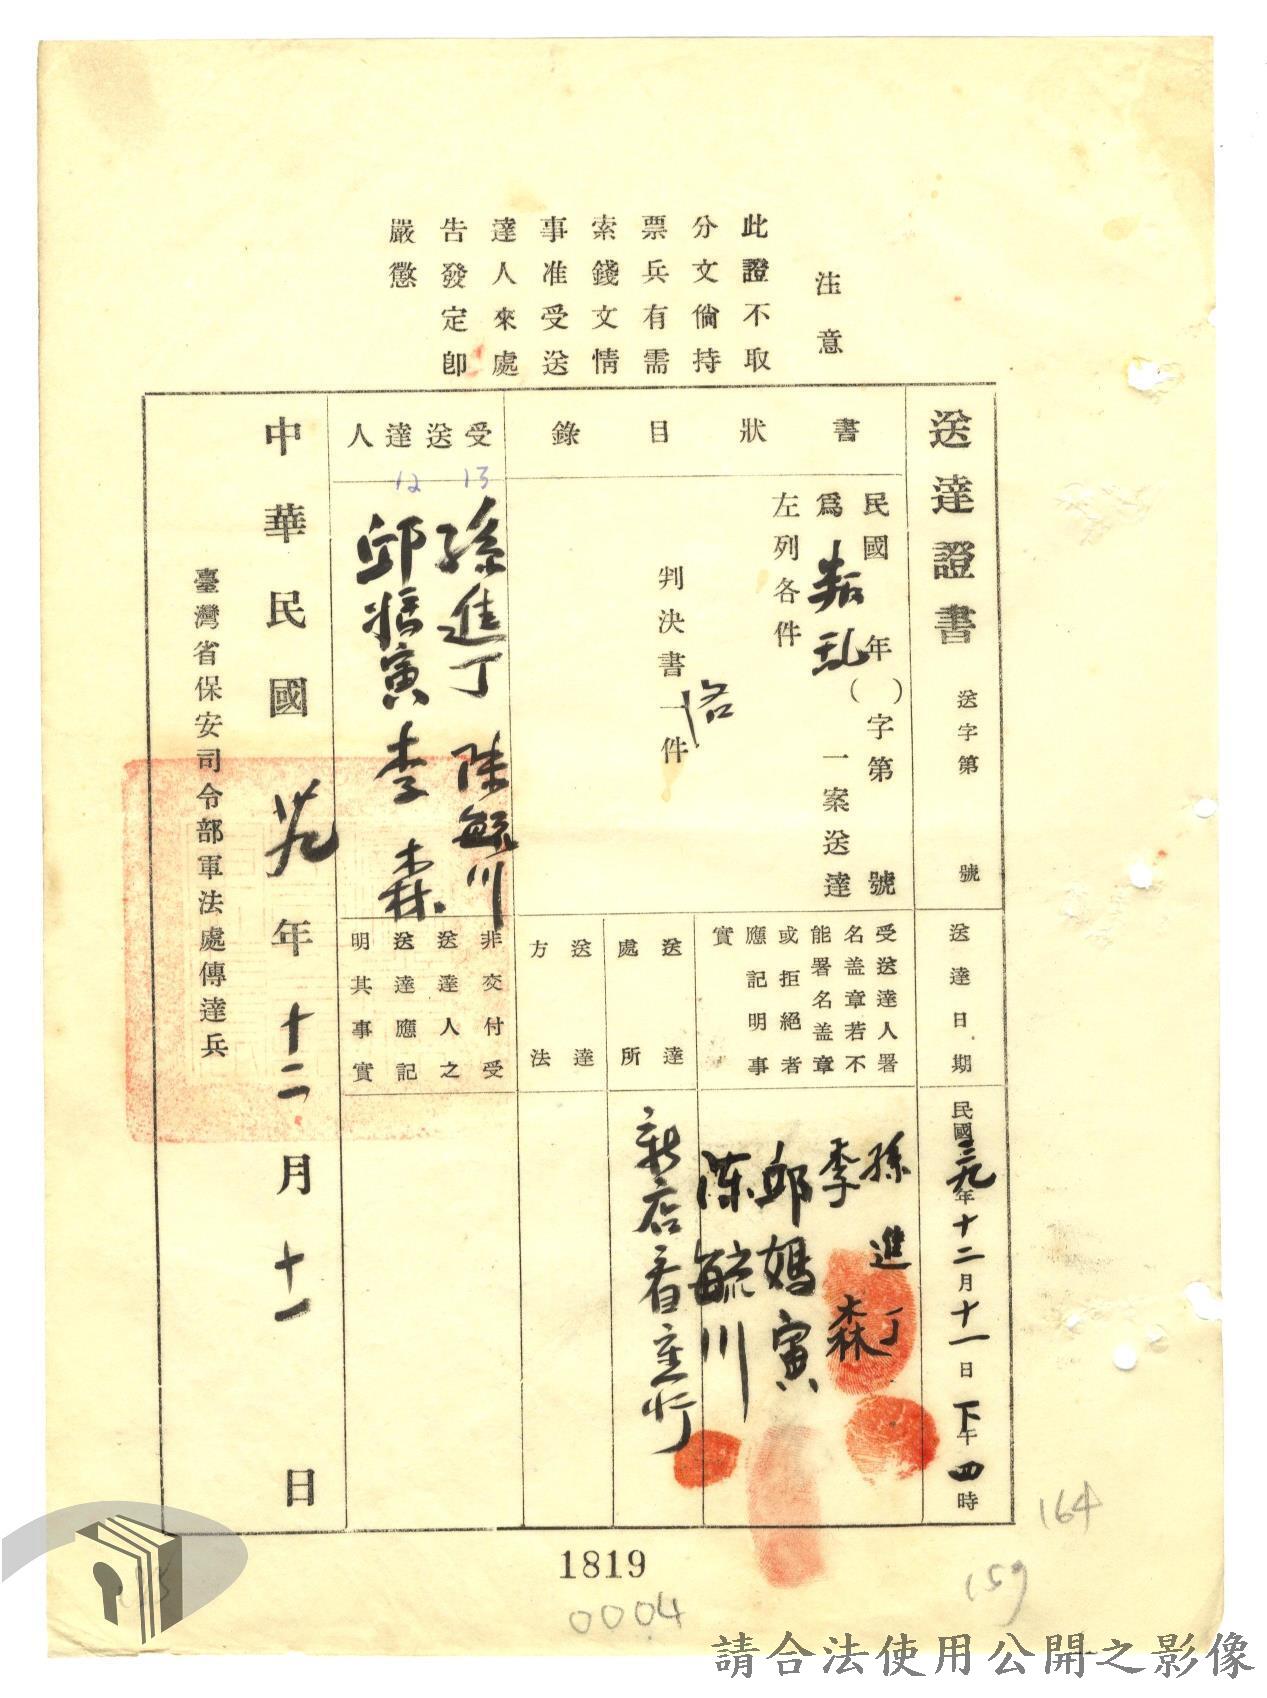 注意
此證不取
分文倘持
票兵有需
索錢文情
事准受送
達人來處
告發定即
嚴懲
送達證書
送字第　號
送達日期
民國三九年十二月十一日下午四時
書狀目錄
民國　年（　）字第　號
為叛乱一案送達
左列各件
判決書一件
各
受送達人署
名盖章若不
能署名盖章
或拒絕者
應記明事
實
孫進丁
李森
邱媽寅
陳毓川
送達處所
新店看守所
送達方法
受送達人
13
12
孫進丁　陳毓川
邱媽寅　李森
非交付受
送達人之
送達應記
明其事實
中華民國卅九年十二月十一日
臺灣省保安司令部軍法處傳達兵
1819
0004
164
159
請合法使用公開之影像